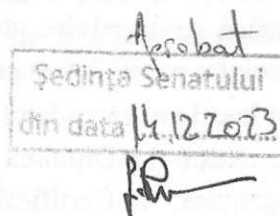 Aprobat
Ședința Senatului
din data 14.12 2023